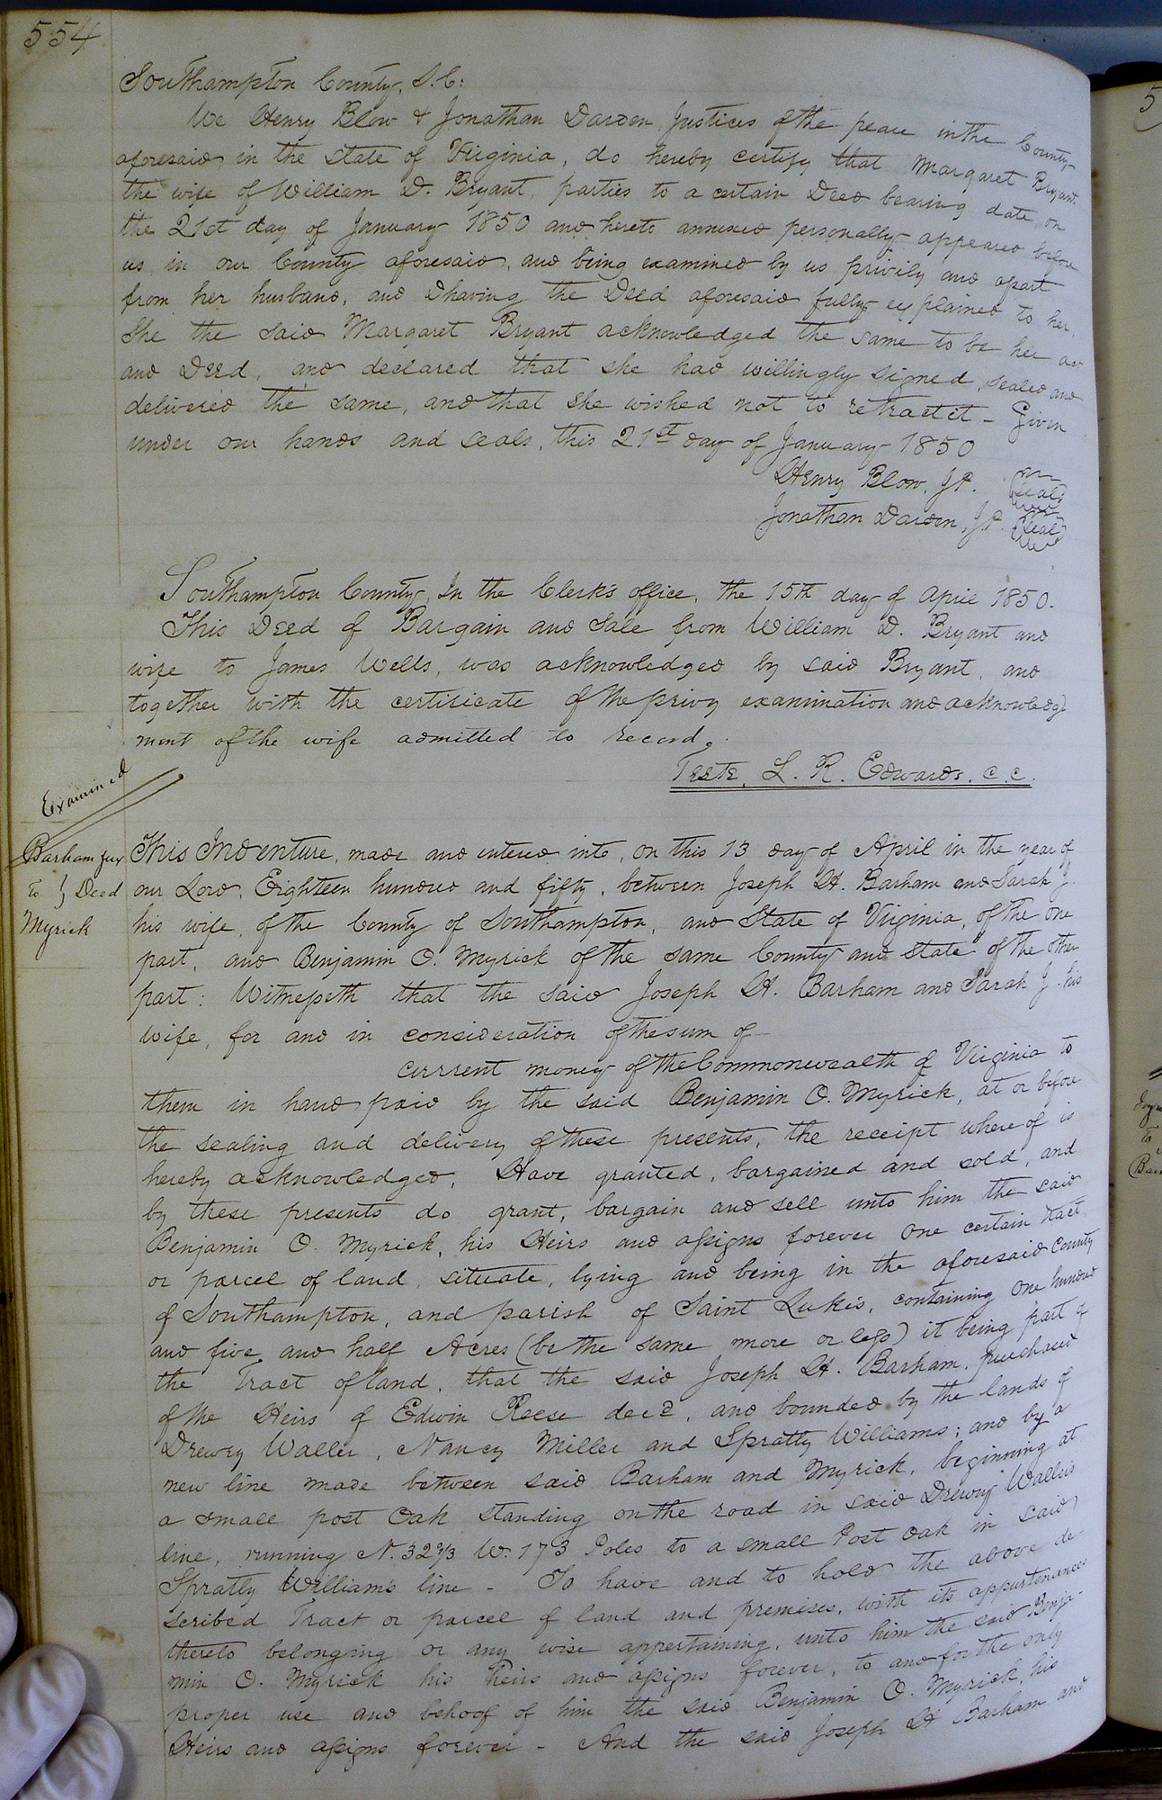 554
Southampton County, S.C:
We Henry Blow & Jonathan Darden, Justices of the peace in the County
aforesaid in the State of Virginia, do hereby certify that Margaret Bryant
the wife of William D. Bryant, parties to a certain Deed bearing date on
the 21st day of January 1850 and hereto annexed personally appeared before
us, in our County aforesaid, and being examined by us privily and apart
from her husband, and having the Deed aforesaid fully explained to her,
She the said Margaret Bryant acknowledged the same to be her act
and Deed, and declared that she had willingly signed, sealed and
delivered the same, and that she wished not to retract it - Given
under our hands and seals, this 21st day of January 1850
Henry Blow. J.P. (Seal)
Jonathan Darden, J.P. (Seal)
Southampton County, In the Clerk's office, the 15th day of April 1850.
This Deed of Bargain and Sale from William D. Bryant and
wife to James Wells, was acknowledged by said Bryant, and
together with the certificate of the privy examination and acknowledg
ment of the wife admitted to record.
Teste, L. R. Edwards, C.C.
Examined
Barham &ux
to } Deed
Myrick
This Indenture, made and entered into, on this 13 day of April in the year of
our Lord, Eighteen hundred and fifty, between Joseph H. Barham and Sarah J.
his wife, of the County of Southampton, and State of Virginia, of the one
part, and Benjamin O. Myrick of the same County and State of the other
part: Witnesseth that the said Joseph H. Barham and Sarah J. his
wife, for and in consideration of the sum of
current money of the Commonwealth of Virginia to
them in hand paid by the said Benjamin O. Myrick, at or before
the sealing and delivery of these presents, the receipt where of is
hereby acknowledged, Have granted, bargained and sold, and
by these presents do grant, bargain and sell unto him the said
Benjamin O. Myrick, his Heirs and assigns forever one certain tract
or parcel of land, situate, lying and being in the aforesaid County
of Southampton, and parish of Saint Luke's, containing one hundred
and five and half Acres (be the same more or less) it being part of
the Tract of land, that the said Joseph H. Barham, purchased
of the Heirs of Edwin Reese decd. and bounded by the lands of
Drewry Waller, Nancy Miller and Spratly Williams; and by a
new line made between said Barham and Myrick, beginning at
a small post Oak standing on the road in said Drewry Waller's
line, running N. 32⅔ W. 173 Poles to a small Post Oak in said
Spratly William's line - To have and to hold the above de-
scribed Tract or parcel of land and premises, with its appurtenances
thereto belonging or any wise appertaining, unto him the said Benja-
min O. Myrick his Heirs and assigns forever, to and for the only
proper use and behoof of him the said Benjamin O. Myrick, his
Heirs and assigns forever - And the said Joseph H Barham and